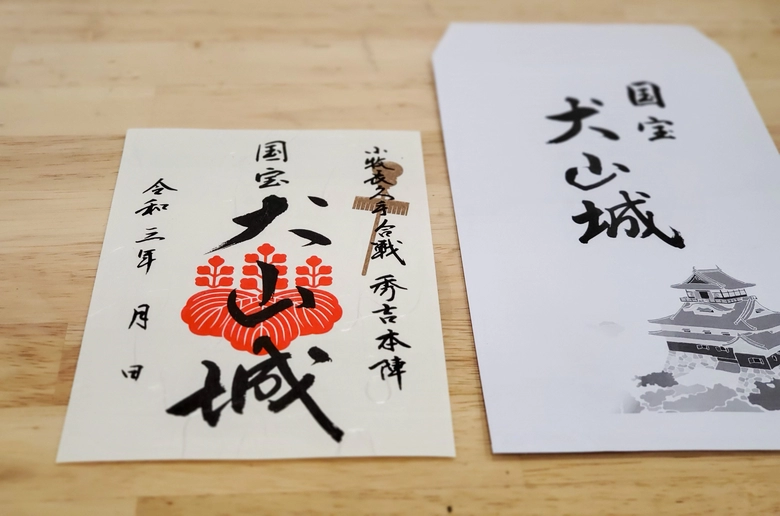 小牧長久手合戦 秀吉本陣
国宝
犬山城
令和三年 月 日
国宝
犬山城